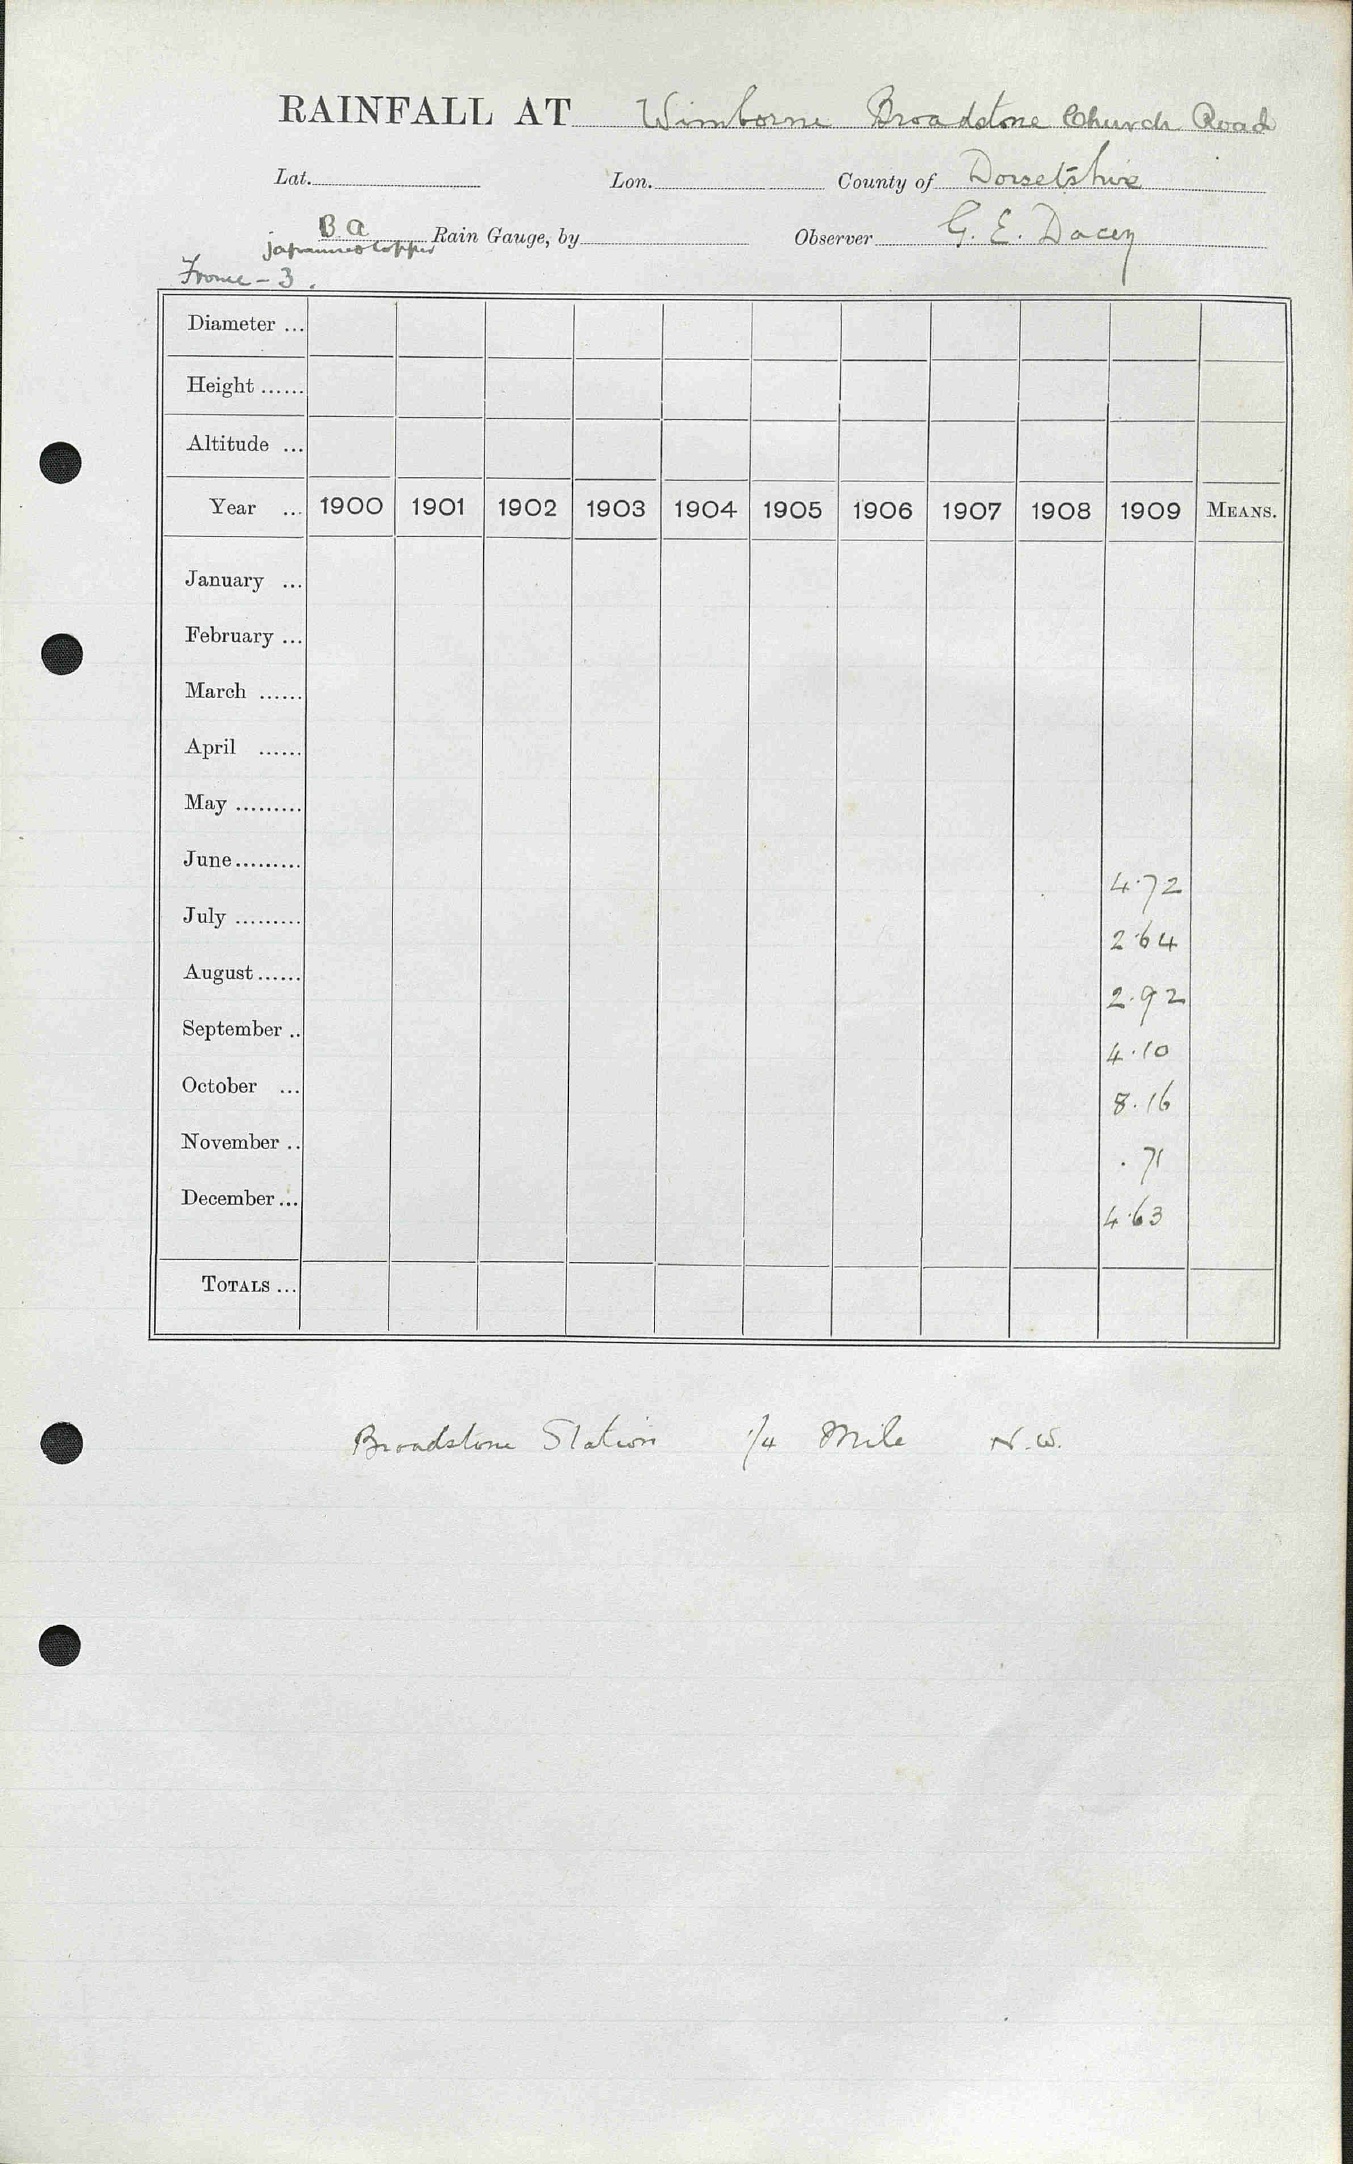 RAINFALL AT Wimborne Broadstone Church Road
Lat. Lon. County of Dorsetshire
B.A. Rain Gauge, by Observer G. E. Dacey
japanned copper
Frome - 3.
Diameter ...
Height ......
Altitude ...
Year ... 1900 1901 1902 1903 1904 1905 1906 1907 1908 1909 MEANS.
January ...
February ...
March ......
April ......
May .........
June ......... 4.72
July ......... 2.64
August ...... 2.92
September .. 4.10
October ... 8.16
November .. .71
December ... 4.63
TOTALS ...
Broadstone Station 1/4 Mile N.W.